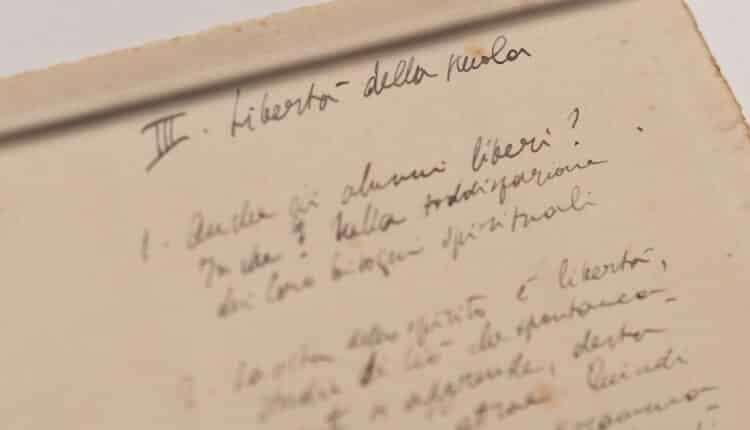 III. Libertà della scuola
1. Anche gli alunni liberi?
In che? Nella soddisfazione
dei loro bisogni spirituali
2. La vita dello spirito è libertà,
studio di ciò che spontanea-
si apprende, desta
attrae. Quindi